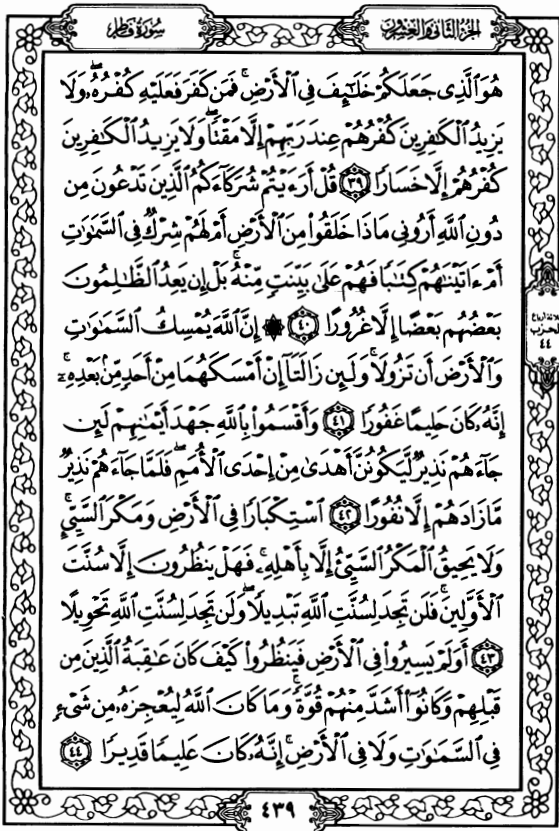 الجزء الثاني والعشرون
سورة فاطر
هُوَ ٱلَّذِى جَعَلَكُمْ خَلَٰٓئِفَ فِى ٱلْأَرْضِ ۚ فَمَن كَفَرَ فَعَلَيْهِ كُفْرُهُۥ ۖ وَلَا
يَزِيدُ ٱلْكَٰفِرِينَ كُفْرُهُمْ عِندَ رَبِّهِمْ إِلَّا مَقْتًا ۖ وَلَا يَزِيدُ ٱلْكَٰفِرِينَ
كُفْرُهُمْ إِلَّا خَسَارًا ٣٩ قُلْ أَرَءَيْتُمْ شُرَكَآءَكُمُ ٱلَّذِينَ تَدْعُونَ مِن
دُونِ ٱللَّهِ أَرُونِى مَاذَا خَلَقُوا۟ مِنَ ٱلْأَرْضِ أَمْ لَهُمْ شِرْكٌ فِى ٱلسَّمَٰوَٰتِ
أَمْ ءَاتَيْنَٰهُمْ كِتَٰبًا فَهُمْ عَلَىٰ بَيِّنَتٍ مِّنْهُ ۚ بَلْ إِن يَعِدُ ٱلظَّٰلِمُونَ
بَعْضُهُم بَعْضًا إِلَّا غُرُورًا ٤٠ ۞ إِنَّ ٱللَّهَ يُمْسِكُ ٱلسَّمَٰوَٰتِ
وَٱلْأَرْضَ أَن تَزُولَا ۚ وَلَئِن زَالَتَآ إِنْ أَمْسَكَهُمَا مِنْ أَحَدٍ مِّنۢ بَعْدِهِۦٓ ۚ
إِنَّهُۥ كَانَ حَلِيمًا غَفُورًا ٤١ وَأَقْسَمُوا۟ بِٱللَّهِ جَهْدَ أَيْمَٰنِهِمْ لَئِن
جَآءَهُمْ نَذِيرٌ لَّيَكُونُنَّ أَهْدَىٰ مِنْ إِحْدَى ٱلْأُمَمِ ۖ فَلَمَّا جَآءَهُمْ نَذِيرٌ
مَّا زَادَهُمْ إِلَّا نُفُورًا ٤٢ ٱسْتِكْبَارًا فِى ٱلْأَرْضِ وَمَكْرَ ٱلسَّيِّئِ ۚ
وَلَا يَحِيقُ ٱلْمَكْرُ ٱلسَّيِّئُ إِلَّا بِأَهْلِهِۦ ۚ فَهَلْ يَنظُرُونَ إِلَّا سُنَّتَ
ٱلْأَوَّلِينَ ۚ فَلَن تَجِدَ لِسُنَّتِ ٱللَّهِ تَبْدِيلًا ۖ وَلَن تَجِدَ لِسُنَّتِ ٱللَّهِ تَحْوِيلًا
٤٣ أَوَلَمْ يَسِيرُوا۟ فِى ٱلْأَرْضِ فَيَنظُرُوا۟ كَيْفَ كَانَ عَٰقِبَةُ ٱلَّذِينَ مِن
قَبْلِهِمْ وَكَانُوٓا۟ أَشَدَّ مِنْهُمْ قُوَّةً ۚ وَمَا كَانَ ٱللَّهُ لِيُعْجِزَهُۥ مِن شَىْءٍ
فِى ٱلسَّمَٰوَٰتِ وَلَا فِى ٱلْأَرْضِ ۚ إِنَّهُۥ كَانَ عَلِيمًا قَدِيرًا ٤٤
ثلاثة أرباع
الحزب
٤٤
٤٣٩